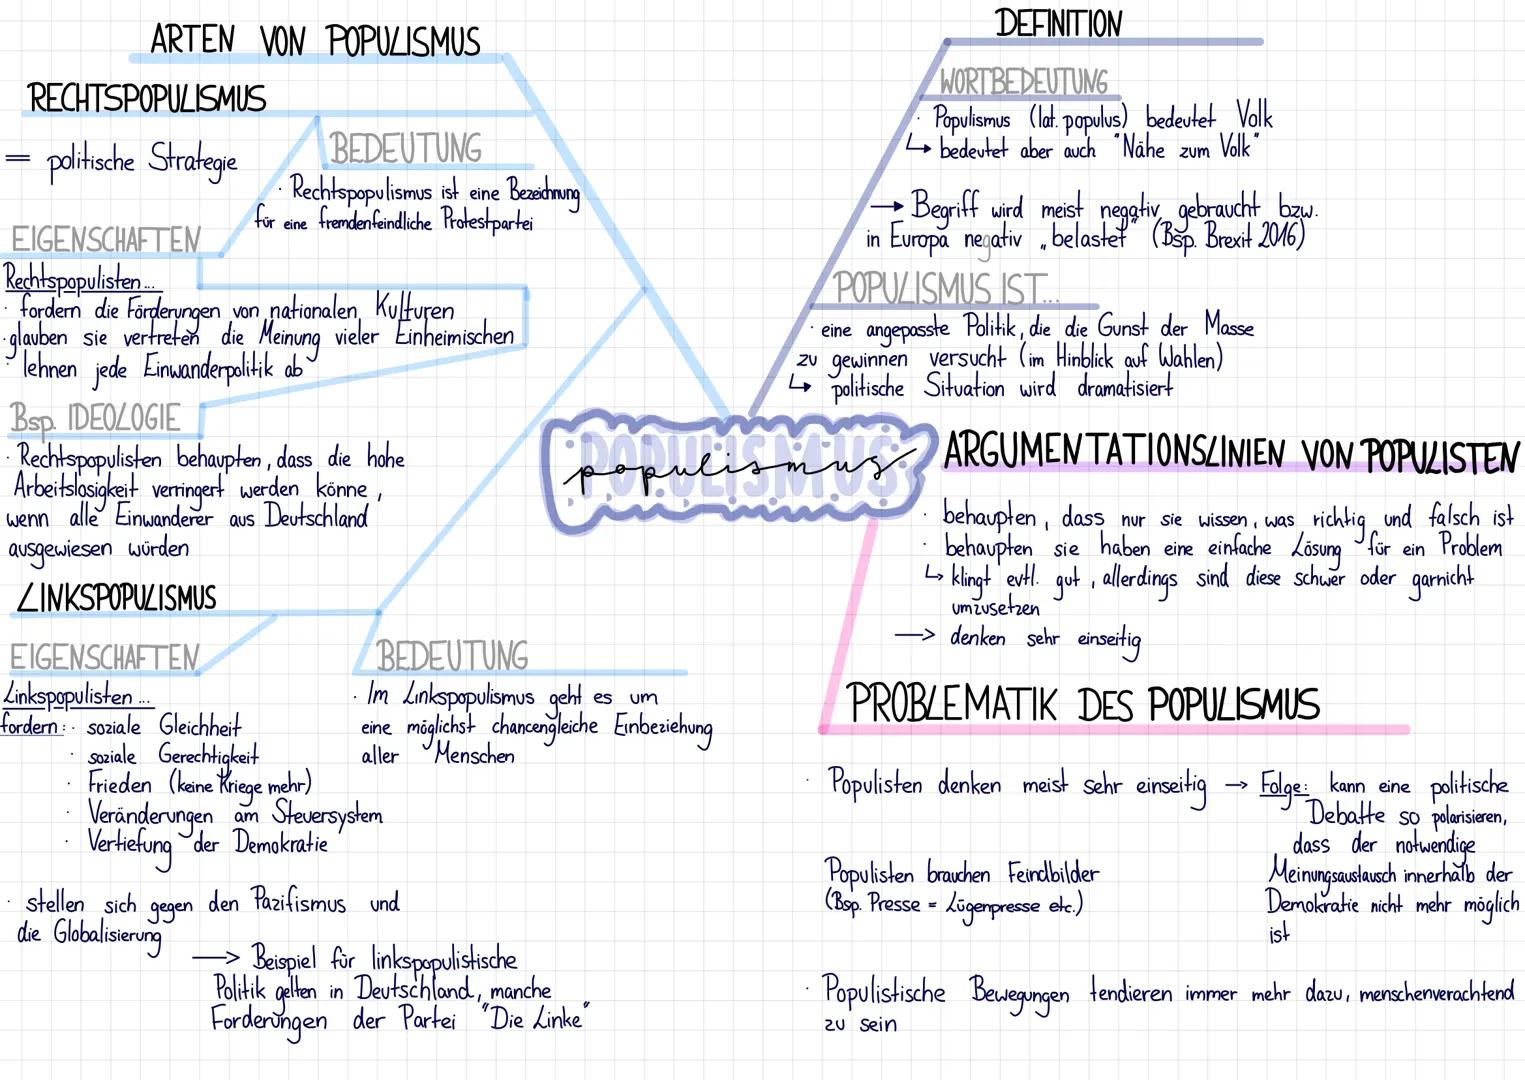 ARTEN VON POPULISMUS
RECHTSPOPULISMUS
= politische Strategie
BEDEUTUNG
· Rechtspopulismus ist eine Bezeichnung
für eine fremdenfeindliche Protestpartei
EIGENSCHAFTEN
Rechtspopulisten...
· fordern die Förderungen von nationalen Kulturen
· glauben sie vertreten die Meinung vieler Einheimischen
· lehnen jede Einwanderpolitik ab
Bsp. IDEOLOGIE
· Rechtspopulisten behaupten, dass die hohe
Arbeitslosigkeit verringert werden könne,
wenn alle Einwanderer aus Deutschland
ausgewiesen würden
LINKSPOPULISMUS
EIGENSCHAFTEN
Linkspopulisten...
fordern: · soziale Gleichheit
· soziale Gerechtigkeit
· Frieden (keine Kriege mehr)
· Veränderungen am Steuersystem
· Vertiefung der Demokratie
· stellen sich gegen den Pazifismus und
die Globalisierung
→ Beispiel für linkspopulistische
Politik gelten in Deutschland, manche
Forderungen der Partei "Die Linke"
BEDEUTUNG
· Im Linkspopulismus geht es um
eine möglichst chancengleiche Einbeziehung
aller Menschen
POPULISMUS
populismus
DEFINITION
WORTBEDEUTUNG
· Populismus (lat. populus) bedeutet Volk
↳ bedeutet aber auch "Nähe zum Volk"
→ Begriff wird meist negativ gebraucht bzw.
in Europa negativ „belastet" (Bsp. Brexit 2016)
POPULISMUS IST...
· eine angepasste Politik, die die Gunst der Masse
zu gewinnen versucht (im Hinblick auf Wahlen)
↳ politische Situation wird dramatisiert
ARGUMENTATIONSLINIEN VON POPULISTEN
· behaupten, dass nur sie wissen, was richtig und falsch ist
· behaupten sie haben eine einfache Lösung für ein Problem
↳ klingt evtl. gut, allerdings sind diese schwer oder garnicht
umzusetzen
→ denken sehr einseitig
PROBLEMATIK DES POPULISMUS
· Populisten denken meist sehr einseitig → Folge: kann eine politische
Debatte so polarisieren,
dass der notwendige
Meinungsaustausch innerhalb der
Demokratie nicht mehr möglich
ist
Populisten brauchen Feindbilder
(Bsp. Presse = Lügenpresse etc.)
· Populistische Bewegungen tendieren immer mehr dazu, menschenverachtend
zu sein